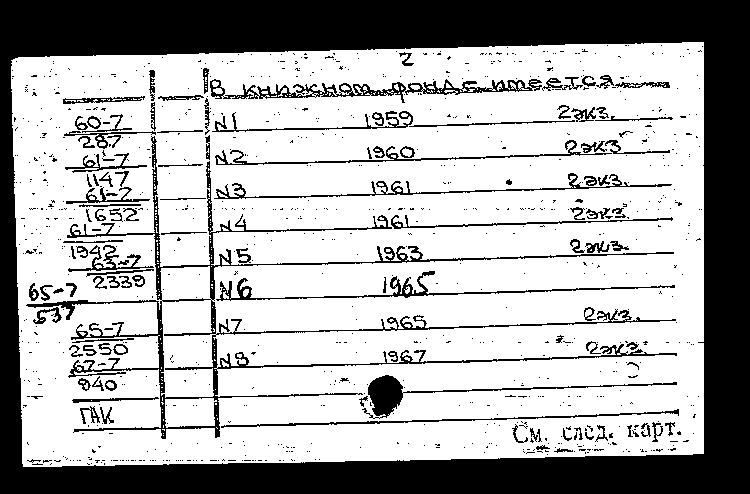 2
В книжном фонде имеется:
60-7 N1 1959 2экз.
287
61-7 N2 1960 2экз
1147
61-7 N3 1961 2экз.
1652
61-7 N4 1961 2экз
1942
63-7 N5 1963 2экз.
2339
65-7 N6 1965
537
65-7 N7 1965 2экз.
2550
67-7 N8 1967 2экз.
940
ГАК
См. след. карт.